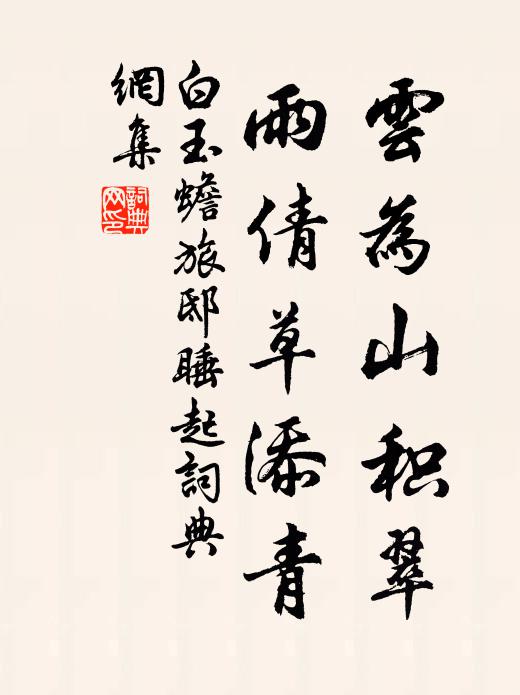 雲為山积翠
雨倩草添青
白玉蟾旅邸睡起詞典
網集
詞典
网印